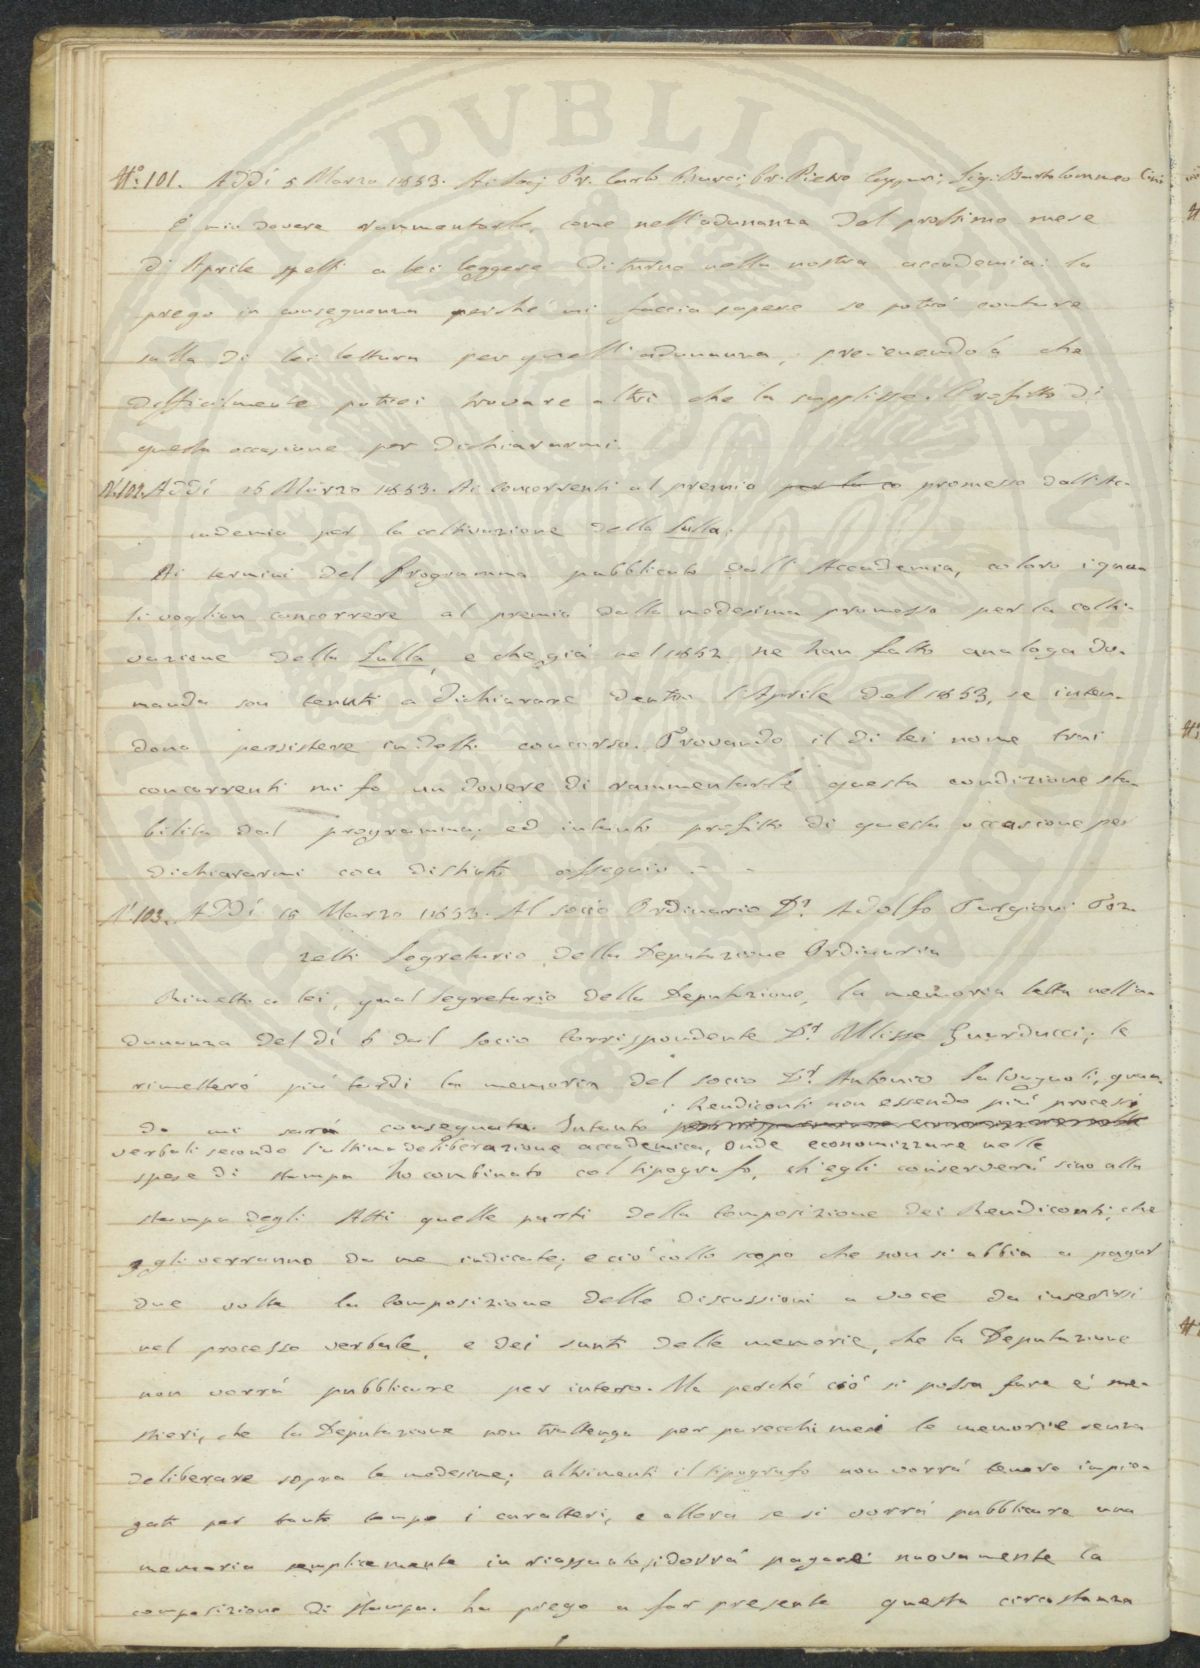 PVBLICAE
N.º 101. Addì 5 Marzo 1853. Ai Socj Pr. Carlo Burci, Pr. Pietro Sig. Bartolommeo Cini
È mio dovere rammentarle, come nell'adunanza del prossimo mese
di Aprile spetti a lei leggere di turno nella nostra accademia: la
prego in conseguenza perché mi faccia sapere se potrò contare
sulla di lei lettura per quell'adunanza, prevenendola che
difficilmente potrei trovare altri che la supplisse. Profitto di
questa occasione per dichiararmi.
N.º 102. Addì 15 Marzo 1853. Ai concorrenti al premio per la co promesso dall'Ac-
cademia per la coltivazione della Sulla.
Ai termini del Programma pubblicato dall'Accademia, coloro i qua-
li voglion concorrere al premio dalla medesima promesso per la colti-
vazione della Sulla, e che già nel 1852 ne han fatto analoga do-
manda son tenuti a dichiarare dentro l'Aprile del 1853, se inten-
dono persistere in detto concorso. Trovando il di lei nome trai
concorrenti mi fo un dovere di rammentarle questa condizione sta-
bilita dal programma; ed intanto profitto di questa occasione per
dichiararmi con distinto ossequio - -
N.º 103. Addì 15 Marzo 1853. Al socio Ordinario D.r Adolfo Targioni Toz-
zetti Segretario della Deputazione Ordinaria
Rimetto a lei, qual Segretario della Deputazione, la memoria letta nell'a-
dunanza del dì 6 dal Socio Corrispondente D.r Ulisse Guarducci; le
rimetterò più tardi la memoria del socio D.r Antonio Salvagnoli, quan-
i Rendiconti non essendo più processi
do mi sarà consegnata. Intanto
verbali secondo l'ultima deliberazione accademica, onde economizzare nelle
spese di stampa ho combinato col tipografo, ch'egli conserverà sino alla
stampa degli Atti quelle parti della composizione dei Rendiconti, che
gli verranno da me indicate; e ciò collo scopo che non si abbia a pagar
due volte la composizione delle discussioni a voce da inserirsi
nel processo verbale, e dei sunti delle memorie, che la Deputazione
non vorrà pubblicare per intero. Ma perché ciò si possa fare è me-
stieri, che la Deputazione non trattenga per parecchi mesi le memorie senza
deliberare sopra le medesime; altrimenti il tipografo non vorrà tenere impie-
gati per tanto tempo i caratteri, e allora se si vorrà pubblicare una
memoria semplicemente in riassunto, si dovrà pagare nuovamente la
composizione di stampa. La prego a far presente questa circostanza